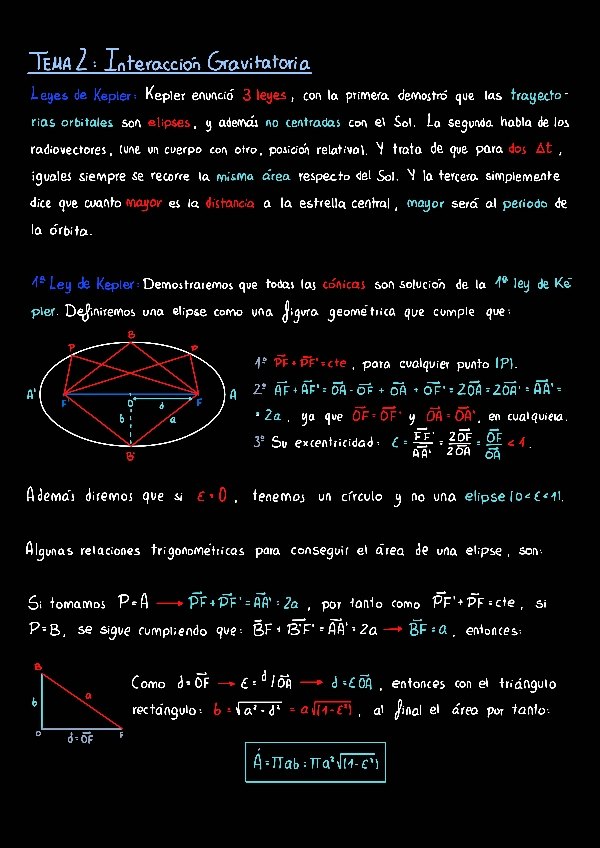 TEMA 2: Interacción Gravitatoria
Leyes de Kepler: Kepler enunció 3 leyes, con la primera demostró que las trayecto-
rias orbitales son elipses, y además no centradas con el Sol. La segunda habla de los
radiovectores, (une un cuerpo con otro, posición relativa). Y trata de que para dos Δt,
iguales siempre se recorre la misma área respecto del Sol. Y la tercera simplemente
dice que cuanto mayor es la distancia a la estrella central, mayor será al periodo de
la órbita.
1ª Ley de Kepler: Demostraremos que todas las cónicas son solución de la 1ª ley de Ke-
pler. Definiremos una elipse como una figura geométrica que cumple que:
B
P P
A' F' O d F A
b a
B'
1º P̅F̅ + P̅F̅' = cte, para cualquier punto (P).
2º A̅F̅ + A̅F̅' = O̅A̅ - O̅F̅ + O̅A̅ + O̅F̅' = 2O̅A̅ = 2O̅A̅' = A̅A̅' =
= 2a, ya que O̅F̅ = O̅F̅' y O̅A̅ = O̅A̅', en cualquiera.
3º Su excentricidad: ε = F̅F̅'/A̅A̅' = 2O̅F̅/2O̅A̅ = O̅F̅/O̅A̅ < 1.
Además diremos que si ε = 0, tenemos un círculo y no una elipse (0 < ε < 1).
Algunas relaciones trigonométricas para conseguir el área de una elipse, son:
Si tomamos P = A → P̅F̅ + P̅F̅' = A̅A̅' = 2a, por tanto como P̅F̅' + P̅F̅ = cte, si
P = B, se sigue cumpliendo que: B̅F̅ + B̅F̅' = A̅A̅' = 2a → B̅F̅ = a, entonces:
B
b a
O d = O̅F̅ F
Como d = O̅F̅ → ε = d/O̅A̅ → d = εO̅A̅, entonces con el triángulo
rectángulo: b = √(a² - d²) = a√(1 - ε²), al final el área por tanto:
Á = πab = πa²√(1 - ε²)